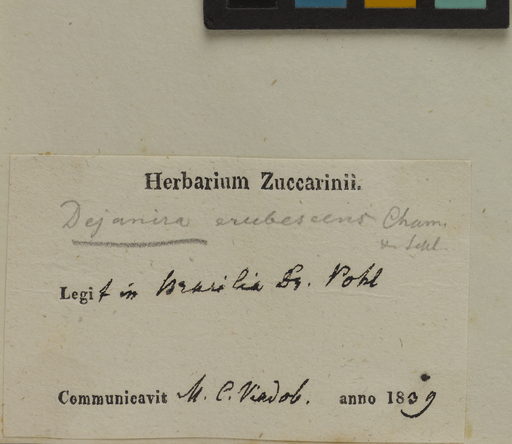 Herbarium Zuccarinii.
Dejanira erubescens Cham.
& Schl.
Legit in Brasilia Dr. Pohl
Communicavit M. C. Vindob. anno 1839